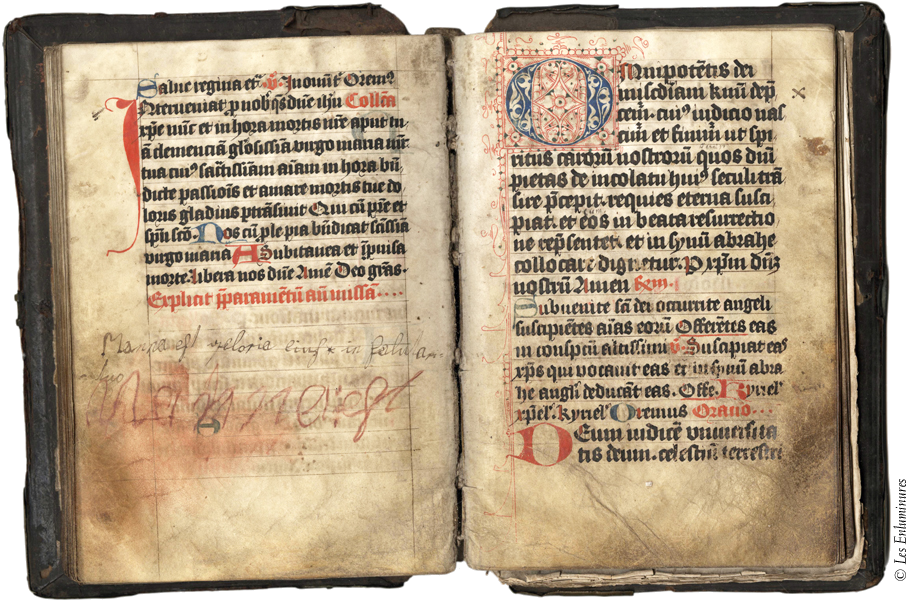 Salue regina etc̃ v̾ In om̃t̃ Orem9
Interueniat p̱ nob̾ q̃s dñe ih̾u Collc̃a
xp̃e nũc et in hora mortis nr̃e aput tu
ã clemenciã gl̾osissĩa virgo maria mr̃
tua cui9 sacͣtissĩam aĩam in hora bñ
dicte passiõis et amare mortis tue do
loris gladius ptrãsiuit Qui cũ pr̃e et
sp̃u scõ. Nos cũ ple pia bñdicat sc̃issĩa
virgo maria A Subitanea et ĩpuisa
morte libera nos dñe Amẽ Deo gr̃as.
Explicit p̱paramẽtũ añ missã....
Magna est gloria eius in
Omnipotẽtis dei
mis̃cdiam k̃mi dep̃
cem̃. cui9 iudicio nas
cim̃ et finim̃ ut spi
ritus caroru᷑ nostroru᷑ quos diñi
pietas de incolatu hui9 seculi trã
sire p̃cepit. requies eterna susci
piat. et eos in beata resurrectio
ne rep̃sentet. et in synu᷑ abrahe
collocare dignetur. P xp̃m dñz
nostru᷑ Amen
Subuenite sc̃i dei occurite angeli
suscipiẽtes aĩas eoru᷑ Offerẽtes eas
in conspcũ altissimi v̾ Suscipiat eas
xp̃s qui vocauit eas et in synũ abra
he angl̾i deducãt eas. Offe. Kyriel̾
xp̃el̾. kyriel̾ Oremus Oracio...
Deum iudicẽ vniuersita
tis deum. celestiu᷑ terrestri
© Les Enluminures